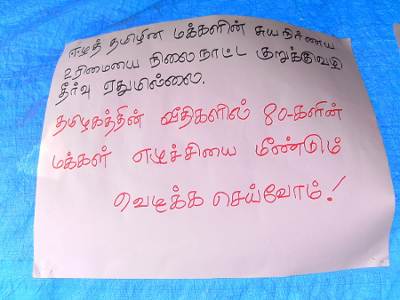 ஈழத் தமிழின மக்களின் சுயநிர்ணய
உரிமையை நிலைநாட்ட குறுக்குவழி
தீர்வு ஏதுமில்லை.
தமிழகத்தின் வீதிகளில் 80-களின்
மக்கள் எழுச்சியை மீண்டும்
வெடிக்க செய்வோம்!